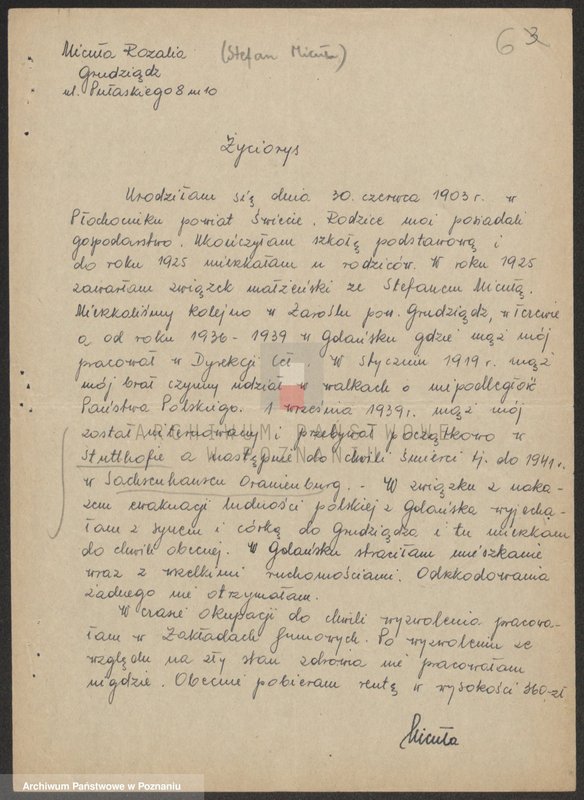 Micuła Rozalia (Stefan Micuła) 63
Grudziądz
ul. Pułaskiego 8 m 10
Życiorys
Urodziłam się dnia 30. czerwca 1903 r. w
Płochocinku powiat Świecie. Rodzice moi posiadali
gospodarstwo. Ukończyłam szkołę podstawową i
do roku 1925 mieszkałam u rodziców. W roku 1925
zawarłam związek małżeński ze Stefanem Micułą.
Mieszkaliśmy kolejno w Zaroślu pow. Grudziądz, w Tczewie
a od roku 1936 - 1939 w Gdańsku gdzie mąż mój
pracował w Dyrekcji Ceł. W styczniu 1919 r. mąż
mój brał czynny udział w walkach o niepodległość
Państwa Polskiego. 1 września 1939 r. mąż mój
został internowany i przebywał początkowo w
Stutthofie a następnie do chwili śmierci tj. do 1941 r.
w Sachsenhausen Oranienburg. - W związku z naka-
zem ewakuacji ludności polskiej z Gdańska wyjecha-
łam z synem i córką do Grudziądza i tu mieszkam
do chwili obecnej. W Gdańsku straciłam mieszkanie
wraz z wszelkimi ruchomościami. Odszkodowania
żadnego nie otrzymałam.
W czasie okupacji do chwili wyzwolenia pracowa-
łam w Zakładach Gumowych. Po wyzwoleniu ze
względu na zły stan zdrowia nie pracowałam
nigdzie. Obecnie pobieram rentę w wysokości 360 - zł
Micuła
ARCHIWUM PAŃSTWOWE
W POZNANIU
Archiwum Państwowe w Poznaniu